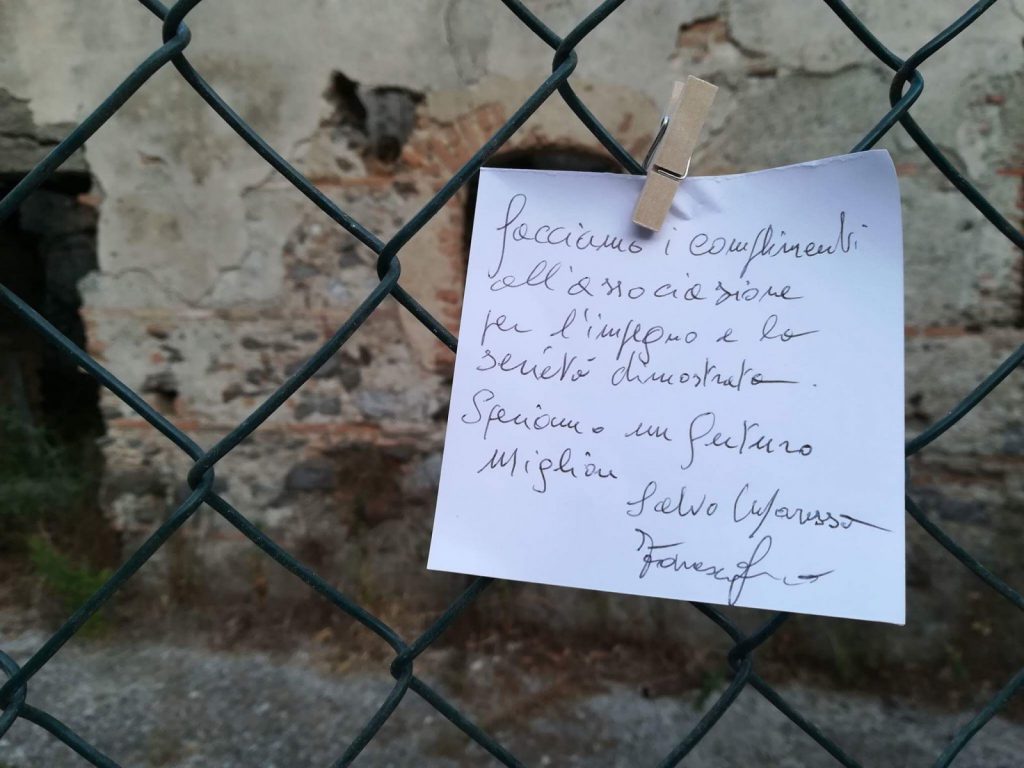 facciamo i complimenti
all'associazione
per l'impegno e la
serietà dimostrata.
Speriamo un futuro
migliore
Salvo